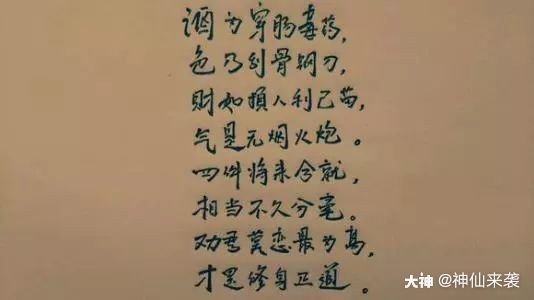 酒为穿肠毒药，
色乃刮骨钢刀，
财如损人利己苗，
气是无烟火炮。
四件将来合就，
相当不久分毫。
劝君莫恋最为高，
才是修身正道。
大神 @神仙来袭